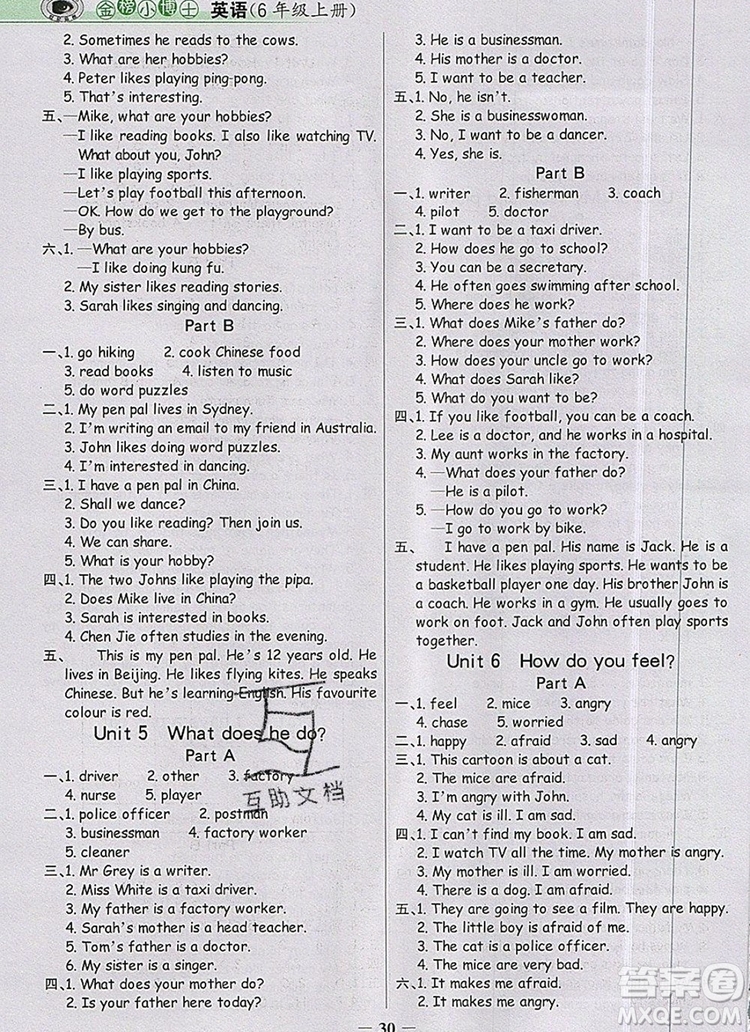 金榜小博士 英语(6年级上册)
2. Sometimes he reads to the cows.
3. What are her hobbies?
4. Peter likes playing ping-pong.
5. That's interesting.
五、—Mike, what are your hobbies?
—I like reading books. I also like watching TV.
What about you, John?
—I like playing sports.
—Let's play football this afternoon.
—OK. How do we get to the playground?
—By bus.
六、1. —What are your hobbies?
—I like doing kung fu.
2. My sister likes reading stories.
3. Sarah likes singing and dancing.
Part B
一、1. go hiking 2. cook Chinese food
3. read books 4. listen to music
5. do word puzzles
二、1. My pen pal lives in Sydney.
2. I'm writing an email to my friend in Australia.
3. John likes doing word puzzles.
4. I'm interested in dancing.
三、1. I have a pen pal in China.
2. Shall we dance?
3. Do you like reading? Then join us.
4. We can share.
5. What is your hobby?
四、1. The two Johns like playing the pipa.
2. Does Mike live in China?
3. Sarah is interested in books.
4. Chen Jie often studies in the evening.
五、 This is my pen pal. He's 12 years old. He
lives in Beijing. He likes flying kites. He speaks
Chinese. But he's learning English. His favourite
colour is red.
Unit 5 What does he do?
Part A
一、1. driver 2. other 3. factory
4. nurse 5. player
二、1. police officer 2. postman
3. businessman 4. factory worker
5. cleaner
三、1. Mr Grey is a writer.
2. Miss White is a taxi driver.
3. My father is a factory worker.
4. Sarah's mother is a head teacher.
5. Tom's father is a doctor.
6. My sister is a nurse.
四、1. What does your mother do?
2. Is your father here today?
3. He is a businessman.
4. His mother is a doctor.
5. I want to be a teacher.
五、1. No, he isn't.
2. She is a businesswoman.
3. No, I want to be a dancer.
4. Yes, she is.
Part B
一、1. writer 2. fisherman 3. coach
4. pilot 5. doctor
二、1. I want to be a taxi driver.
2. How does he go to school?
3. You can be a secretary.
4. He often goes swimming after school.
5. Where does he work?
三、1. What does Mike's father do?
2. Where does your mother work?
3. How does your uncle go to work?
4. What does Sarah like?
5. What do you want to be?
四、1. If you like football, you can be a coach.
2. Lee is a doctor, and he works in a hospital.
3. My aunt works in the factory.
4. —What does your father do?
—He is a pilot.
5. —How do you go to work?
—I go to work by bike.
五、 I have a pen pal. His name is Jack. He is a
student. He likes playing sports. He wants to be
a basketball player one day. His brother John is
a coach. He works in a gym. He usually goes to
work on foot. Jack and John often play sports
together.
Unit 6 How do you feel?
Part A
一、1. feel 2. mice 3. angry
4. chase 5. worried
二、1. happy 2. afraid 3. sad 4. angry
三、1. This cartoon is about a cat.
2. The mice are afraid.
3. I'm angry with John.
4. My cat is ill. I am sad.
四、1. I can't find my book. I am sad.
2. I watch TV all the time. My mother is angry.
3. My mother is ill. I am worried.
4. There is a dog. I am afraid.
五、1. They are going to see a film. They are happy.
2. The little boy is afraid of me.
3. The cat is a police officer.
4. The mice are very bad.
六、1. It makes me afraid.
2. It makes me angry.
30
互助文档
答案圈
MXQE.COM